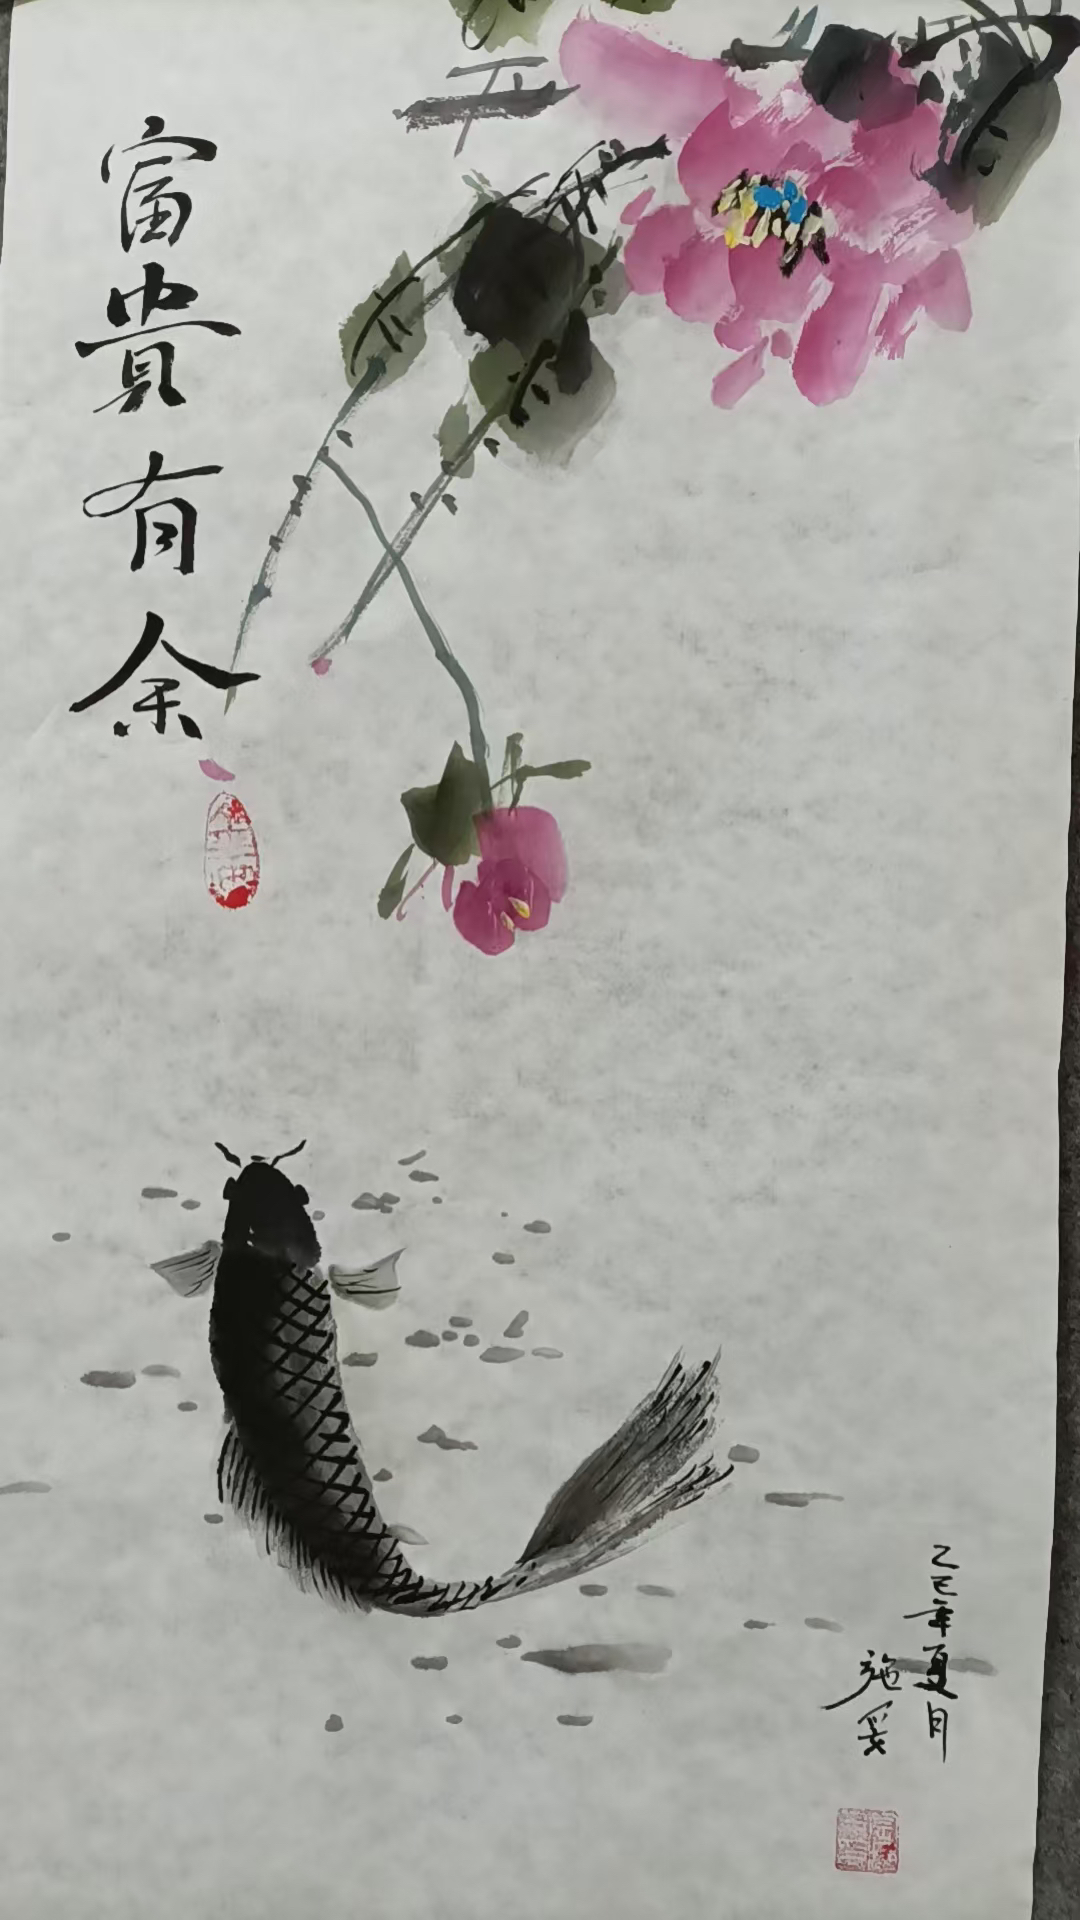 富貴有余
乙巳年夏月
施